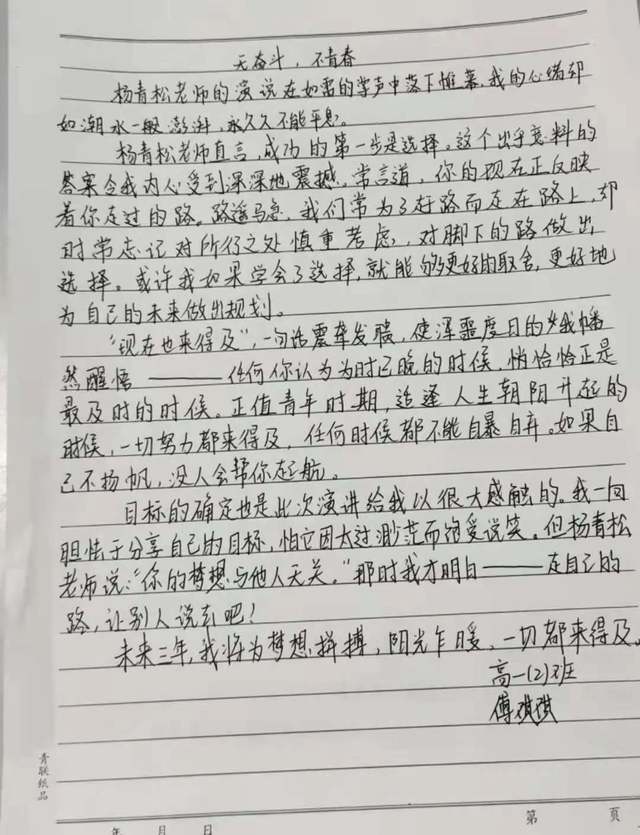 无奋斗，不青春
杨青松老师的演说在如雷的掌声中落下帷幕，我的心绪却
如潮水一般澎湃，永久久不能平息。
杨青松老师直言，成功的第一步是选择。这个出乎意料的
答案令我内心受到深深地震撼。常言道，你的现在正反映
着你走过的路。路遥马急，我们常为了赶路而走在路上，却
时常忘记对所行之处慎重考虑，对脚下的路做出
选择。或许我如果学会了选择，就能够更好的取舍，更好地
为自己的未来做出规划。
“现在也来得及”，一句话震聋发聩，使浑噩度日的我幡
然醒悟——任何你认为为时已晚的时候，恰恰正是
最及时的时候。正值青年时期，追逐人生朝阳升起的
时候，一切努力都来得及，任何时候都不能自暴自弃。如果自
己不扬帆，没人会帮你起航。
目标的确定也是此次演讲给我以很大感触的。我一向
胆怯于分享自己的目标，怕它因太过渺茫而饱受说笑。但杨青松
老师说：“你的梦想与他人无关。”那时我才明白——走自己的
路，让别人说去吧！
未来三年，我将为梦想拼搏，阳光乍暖，一切都来得及。
高一(2)班
傅琪琪
青联纸品
年 月 日 第 页